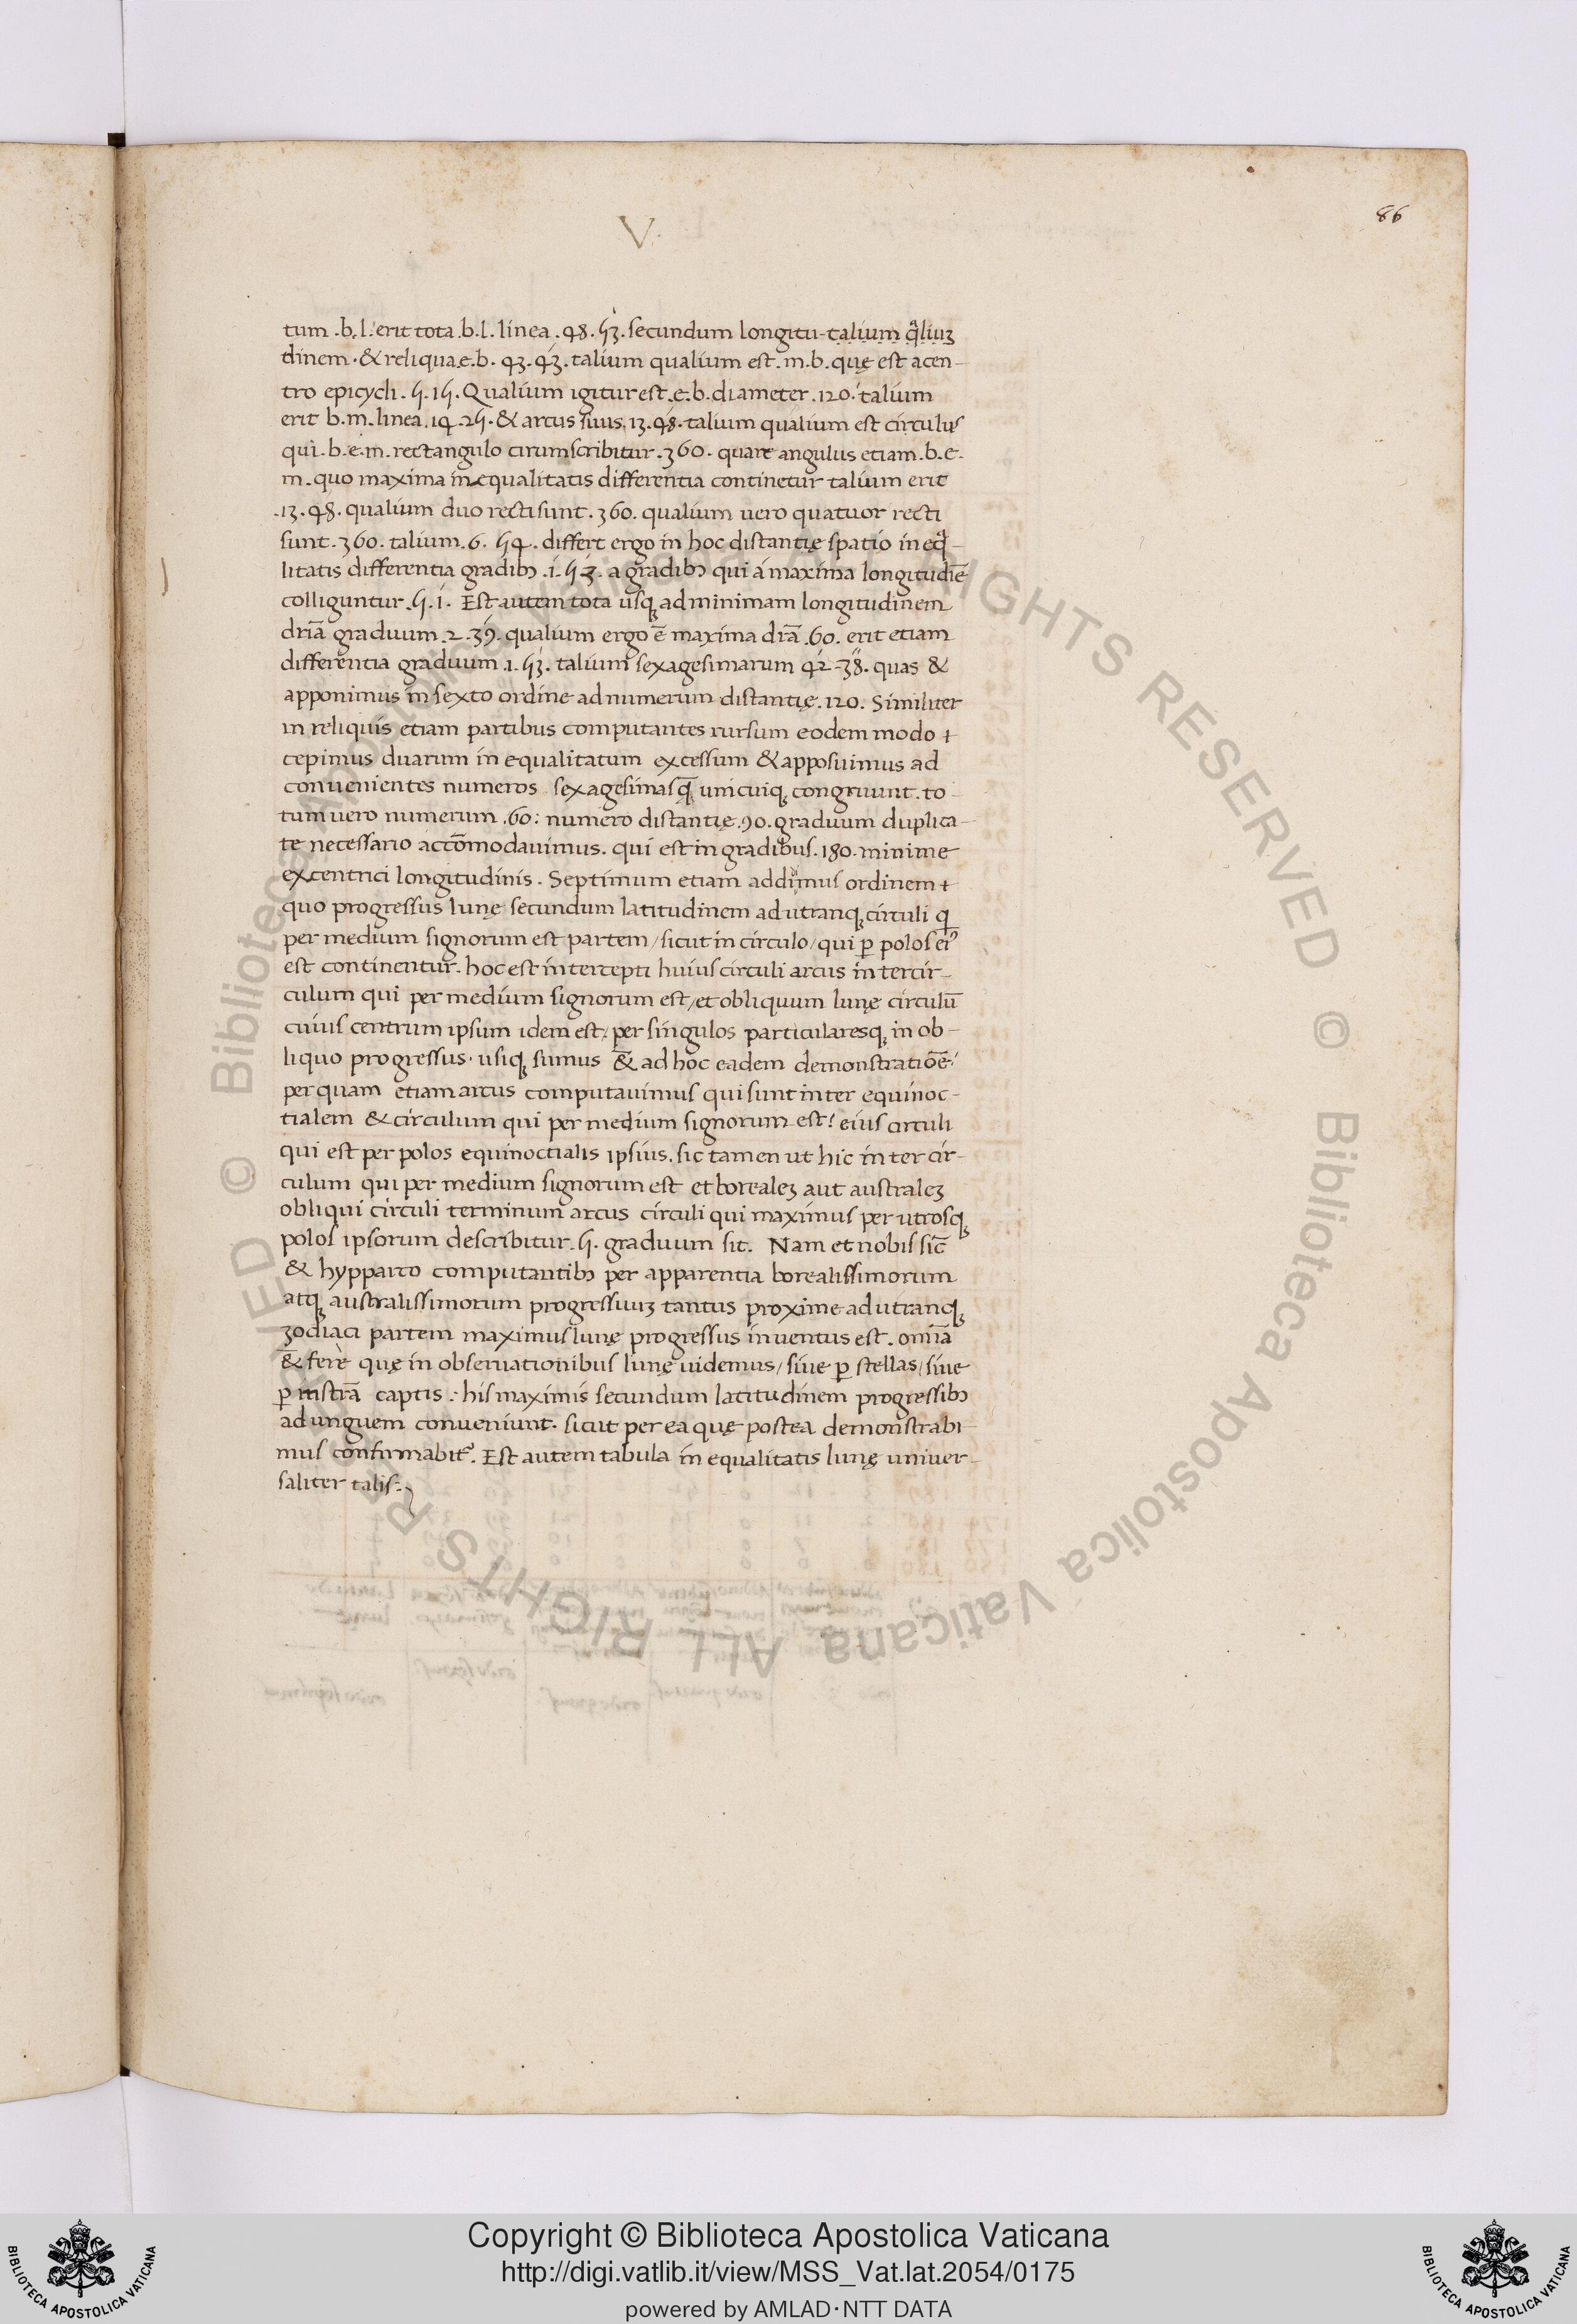 86
V.
tum .b.l. erit tota .b.l. linea .48.53. secundum longitu-talium q̃liuʒ
dinem. & reliqua.e.b. 43.43. talium qualium est .m.b. quę est a cen-
tro epicycli .5.15. Qualium igitur est .e.b. diameter .120. talium
erit b.m. linea .14.25. & arcus suus .13.48. talium qualium est circulus
qui .b.e.m. rectangulo cirumscribitur .360. quare angulus etiam .b.e.
m. quo maxima inequalitatis differentia continetur talium erit
.13.48. qualium duo recti sunt .360. qualium uero quatuor recti
sunt .360. talium .6.54. differt ergo in hoc distantię spatio ineq̃-
litatis differentia gradibꝰ .1.53. a gradibꝰ qui á maxima longitudiē
colliguntur .5.1. Est autem tota usqꝫ ad minimam longitudinem
dr̃ia graduum .2.39. qualium ergo ē maxima dr̃a .60. erit etiam
differentia graduum .1.53. talium sexagesimarum 42.38. quas &
apponimus in sexto ordine ad numerum distantię .120. Similiter
in reliquis etiam partibus computantes rursum eodem modo +
cepimus duarum inequalitatum excessum & apposuimus ad
conuenientes numeros sexagesimas q̄ unicuiqꝫ congruunt. to-
tum uero numerum .60: numero distantię .90. graduum duplica-
te necessario accōmodauimus. qui est in gradibus .180. minime
excentrici longitudinis. Septimum etiam addimus ordinem +
quo progressus lunę secundum latitudinem ad utranqꝫ circuli q̄
per medium signorum est partem / sicut in circulo / qui ꝑ polos eiꝰ
est continentur. hoc est intercepti huius circuli arcus inter cir-
culum qui per medium signorum est / et obliquum lunę circulū
cuius centrum ipsum idem est / per singulos particularesqꝫ in ob-
liquo progressus. usiqꝫ sumus & ad hoc eadem demonstratiōe:
per quam etiam arcus computauimus qui sunt inter equinoc-
tialem & circulum qui per medium signorum est: eius circuli
qui est per polos equinoctialis ipsius. sic tamen ut hic inter cir-
culum qui per medium signorum est et borealeʒ aut australeʒ
obliqui circuli terminum arcus circuli qui maximus per utrosqꝫ
polos ipsorum describitur .5. graduum sit. Nam et nobis sic̄
& hypparco computantibꝰ per apparentia borealissimorum
atqꝫ australissimorum progressuuʒ tantus proxime ad utranqꝫ
zodiaci partem maximus lunę progressus inuentus est. omīa
& ferè quę in obseruationibus lunę uidemus / siue ꝑ stellas / siue
ꝑ instr̄a captis: his maximis secundum latitudinem progressibꝰ
ad unguem conueniunt. sicut per ea quę postea demonstrabi-
mus confirmabit̃. Est autem tabula inequalitatis lunę uniuer-
saliter talis:
© Biblioteca Apostolica Vaticana ALL RIGHTS RESERVED © Biblioteca Apostolica Vaticana ALL RIGHTS RESERVED
Copyright © Biblioteca Apostolica Vaticana
http://digi.vatlib.it/view/MSS_Vat.lat.2054/0175
powered by AMLAD·NTT DATA
BIBLIOTECA APOSTOLICA VATICANA
BIBLIOTECA APOSTOLICA VATICANA